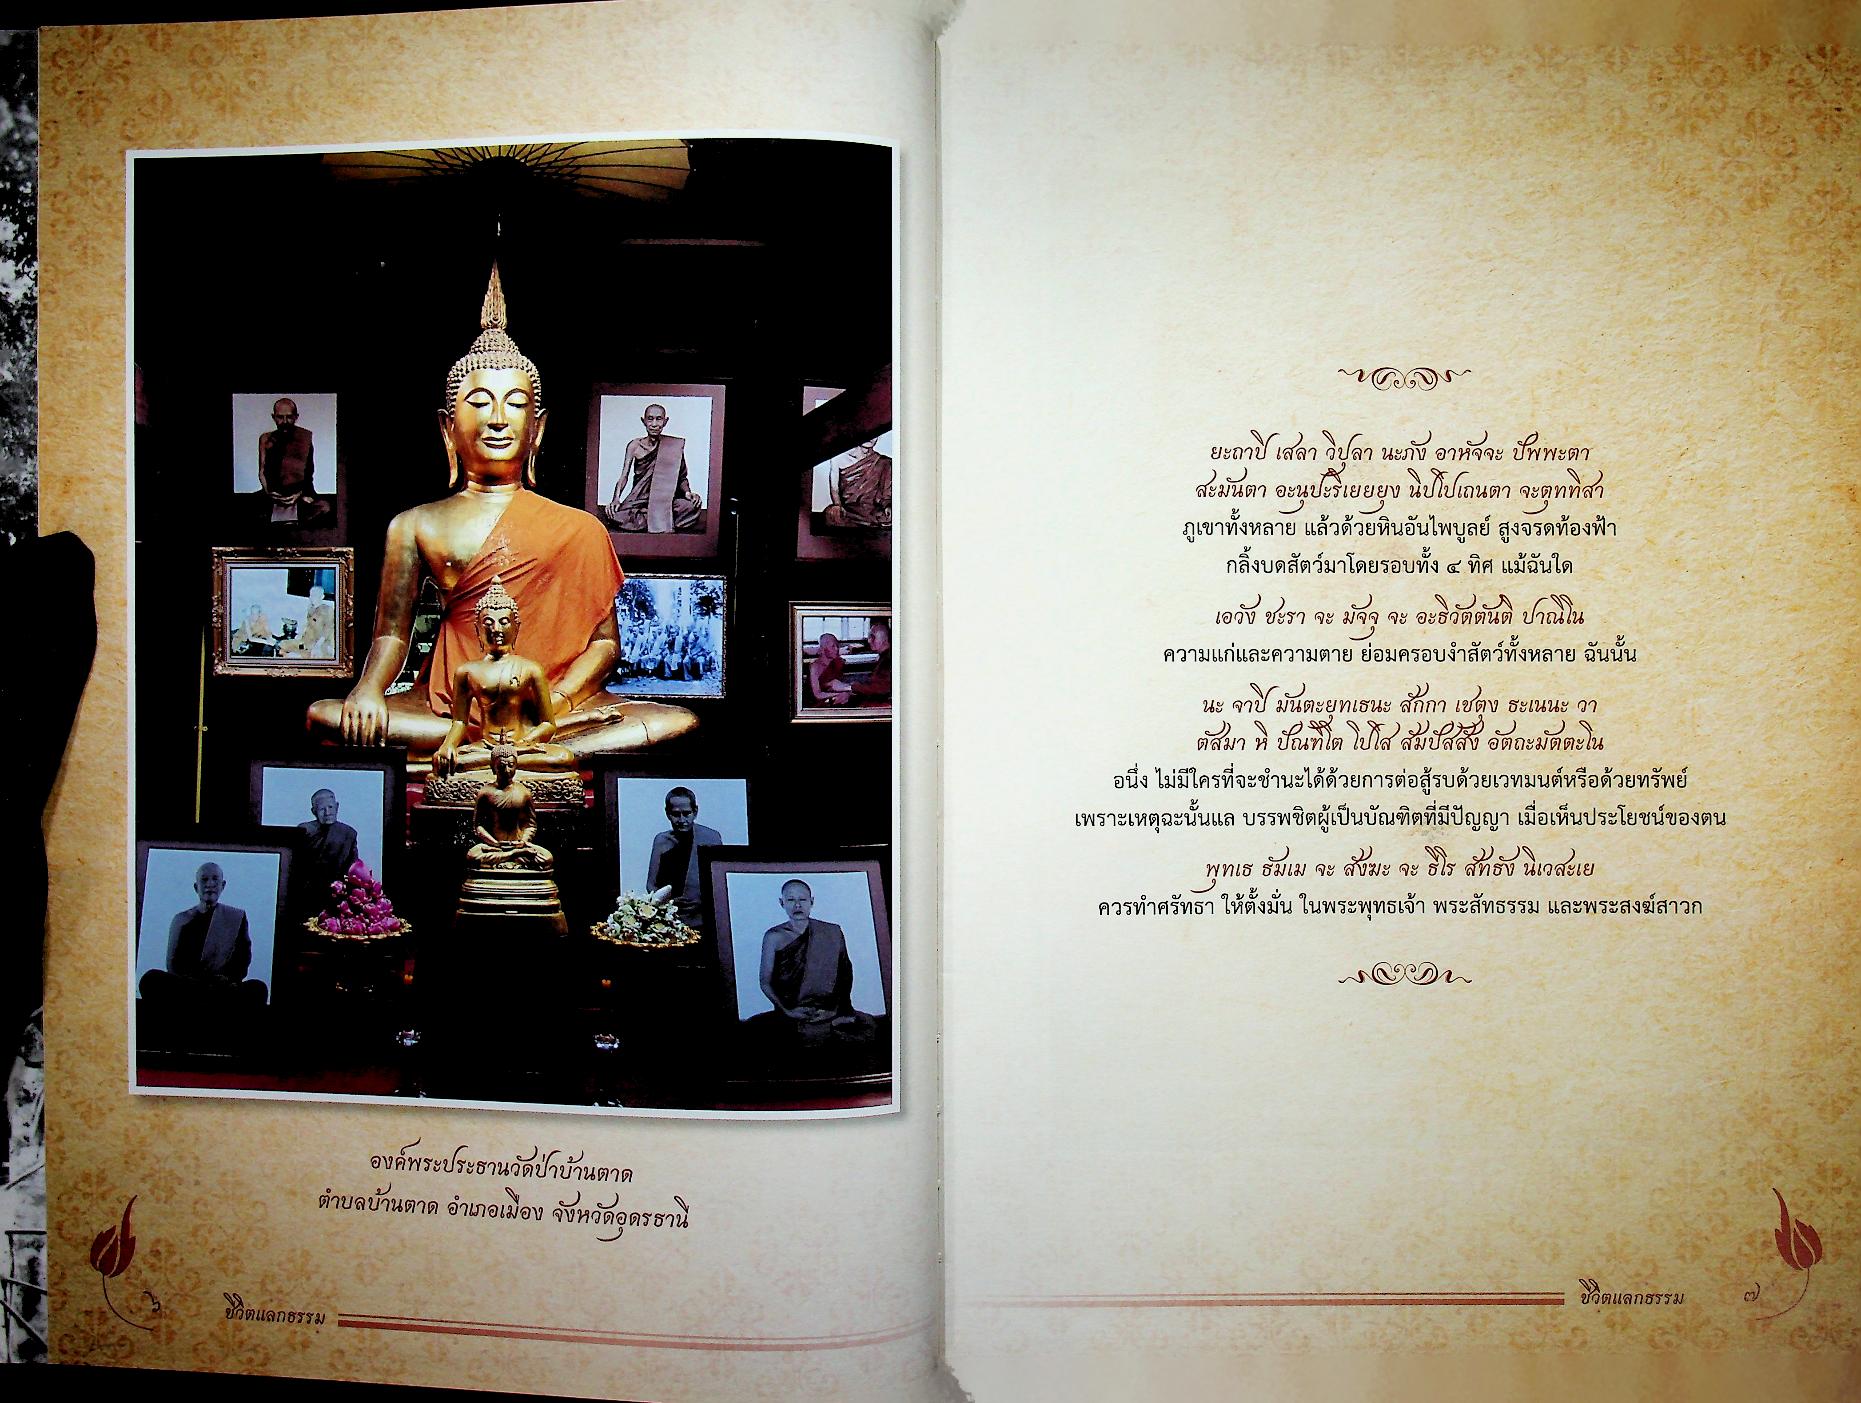 องค์พระประธานวัดป่าบ้านตาด
ตำบลบ้านตาด อำเภอเมือง จังหวัดอุดรธานี
๖
ชีวิตแลกธรรม
ยะถาปิ เสลา วิปุลา นะภัง อาหัจจะ ปัพพะตา
สะมันตา อะนุปะริเยยยุง นิปโปเถนตา จะตุททิสา
ภูเขาทั้งหลาย แล้วด้วยหินอันไพบูลย์ สูงจรดท้องฟ้า
กลิ้งบดสัตว์มาโดยรอบทั้ง ๔ ทิศ แม้ฉันใด
เอวัง ชะรา จะ มัจจุ จะ อะธิวัตตันติ ปาณิโน
ความแก่และความตาย ย่อมครอบงำสัตว์ทั้งหลาย ฉันนั้น
นะ จาปิ มันตะยุทเธนะ สักกา เชตุง ธะเนนะ วา
ตัสมา หิ ปัณฑิโต โปโส สัมปัสสัง อัตถะมัตตะโน
อนึ่ง ไม่มีใครที่จะชำนะได้ด้วยการต่อสู้รบด้วยเวทมนต์หรือด้วยทรัพย์
เพราะเหตุฉะนั้นแล บรรพชิตผู้เป็นบัณฑิตที่มีปัญญา เมื่อเห็นประโยชน์ของตน
พุทเธ ธัมเม จะ สังฆะ จะ ธีโร สัทธัง นิเวสะเย
ควรทำศรัทธา ให้ตั้งมั่น ในพระพุทธเจ้า พระสัทธรรม และพระสงฆ์สาวก
ชีวิตแลกธรรม
๗